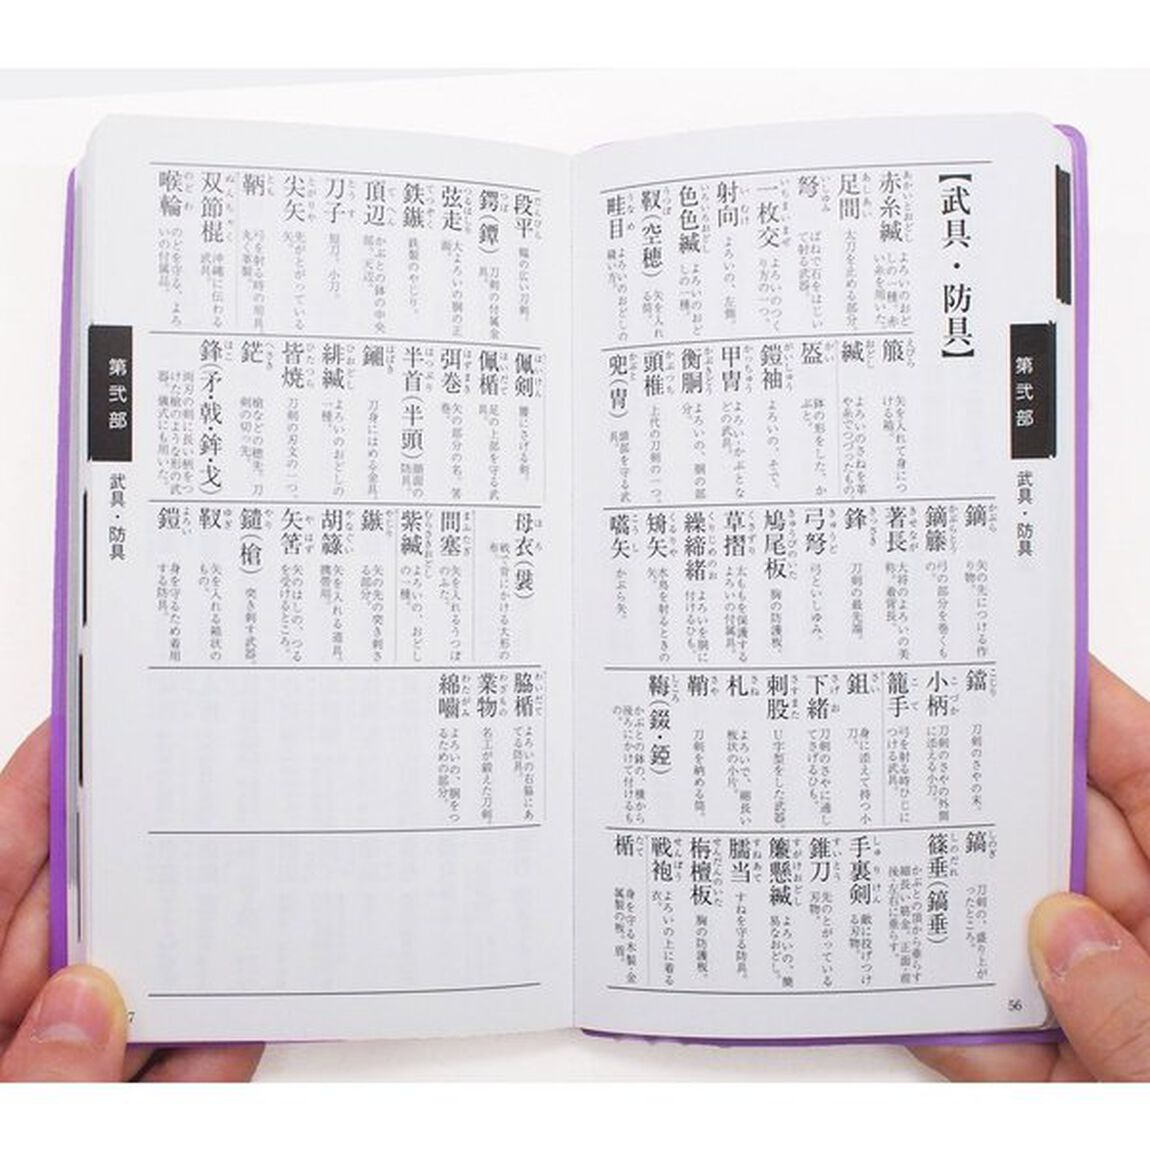 【武具・防具】
赤糸縅 あかいとおどし よろいのおどしの一種。赤い糸を用いた。
足間 あしあい 太刀を止める部分。
弩 いしゆみ ばねで石をはじいて射る武器。
一枚交 いちまいまぜ よろいのつくり方の一つ。
射向 いむけ よろいの、左側。
色色縅 いろいろおどし よろいのおどしの一種。
靫(空穂) うつぼ 矢を入れる筒。
畦目 うなめ よろいのおどしの縫い方。
箙 えびら 矢を入れて身につける箱。
縅 おどし よろいのさねを革や糸でつづったもの。
盔 かい 鉢の形をした、かぶと。
鎧袖 がいしゅう よろいの、そで。
甲冑 かっちゅう よろいかぶとなどの武具。
衡胴 かぶきどう よろいの、胴の部分。
頭椎 かぶつち 上代の刀剣の一つ。
兜(冑) かぶと 頭部を守る武具。
鏑 かぶら 矢の先につける作り物。
鏑籐 かぶらとう 弓の部分を巻くもの。
著長 きせなが 大将のよろいの美称。着背長。
鋒 きっさき 刀剣の最先端。
弓弩 きゅうど 弓といしゆみ。
鳩尾板 きゅうびのいた 胸の防護板。
草摺 くさずり 太ももを保護するよろいの付属具。
繰締緒 くりじめのお よろいを胴に付けるひも。
鴙矢 くるりや 水鳥を射るときの矢。
嚆矢 こうし かぶら矢。
鐺 こじり 刀剣のさやの末。
小柄 こづか 刀剣のさやの外側に添える小刀。
籠手 こて 弓を射る時ひじにつける武具。
鉏 さい 身に添えて持つ小刀。
下緒 さげお 刀剣のさやに通してさげるひも。
刺股 さすまた U字型をした武器。
札 さね よろいで、細長い板状の小片。
鞘 さや 刀剣を納める筒。
錏(錣・錏) しころ かぶとの鉢の、横から後ろにかけて付けるもの。
鎬 しのぎ 刀剣の、盛り上がったところ。
篠垂(鎬垂) しのだれ かぶとの頂から垂らす細長い筋金。正面・前後・左右に垂らす。
手裏剣 しゅりけん 敵に投げつける刃物。
錐刀 すいとう 先のとがっている刃物。
簾懸縅 すがけおどし よろいの、簡易なおどし。
臑当 すねあて すねを守る防具。
栴檀板 せんだんのいた 胸の防護板。
戦袍 せんぽう よろいの上に着る衣。
楯 たて 身を守る木製・金属製の板。盾。
第弐部
武具・防具
56
段平 だんびら 幅の広い刀剣。
鍔(鐔) つば 刀剣の付属金具。
弦走 つるばしり 大よろいの胴の正面。
鉄鏃 てつぞく 鉄製のやじり。
頂辺 てへん かぶとの鉢の中央部。天辺。
刀子 とうす 短刀。小刀。
尖矢 とがりや 先がとがっている矢。
鞆 とも 弓を射る時の用具。丸く革製。
双節棍 ぬんちゃく 沖縄に伝わる武具。
喉輪 のどわ のどを守る、よろいの付属品。
佩剣 はいけん 腰にさげる剣。
佩楯 はいだて 足の上部を守る武具。
弭巻 はずまき 矢の部分の名。筈
半首(半頭) はっぷり 顔面の防具。
鎺 はばき 刀身にはめる金具。
緋縅 ひおどし よろいのおどしの一種。
皆焼 ひたつら 刀剣の刃文の一つ。
鋩 へさき 槍などの穂先、刀剣の切っ先。
鋒(矛・戟・鉾・戈) ほこ 両刃の剣に長い柄をつけた槍のような形の武器。儀式にも用いた。
母衣(袰) ほろ 戦で背にかける大形の布。
間塞 まふたぎ 矢を入れるうつぼのふた。
紫縅 むらさきおどし よろいの、おどしの一種。
鏃 やじり 矢の先の突き刺さる部分。
胡籙 やなぐい 矢を入れる道具。携帯用。
矢筈 やはず 矢のはしの、つるを受けるところ。
鑓(槍) やり 突き刺す武器。
靫 ゆぎ 矢を入れる箱状のもの。
鎧 よろい 身を守るため着用する防具。
脇楯 わいだて よろいの右脇にあてる防具。
業物 わざもの 名工が鍛えた刀剣。
綿嚙 わたがみ よろいの、胴をつるための部分。
第弐部
武具・防具
7